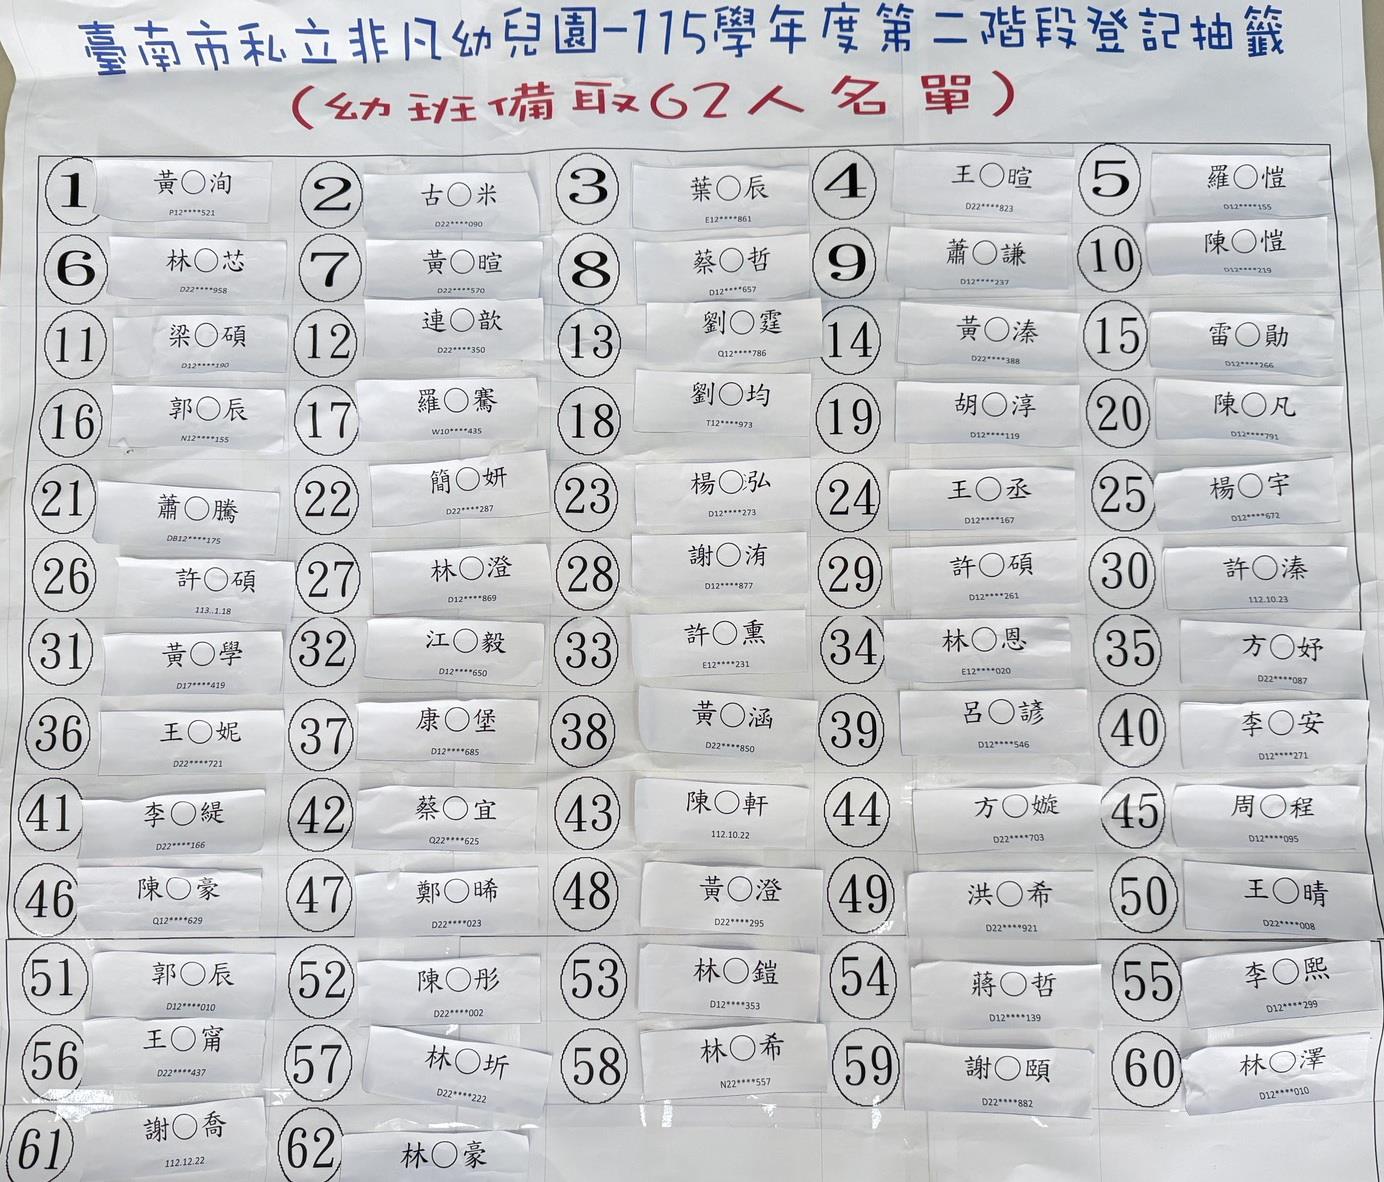 臺南市私立非凡幼兒園-115學年度第二階段登記抽籤
(幼班備取62人名單)
1 黃○洵 P12****521
2 古○米 D22****090
3 葉○辰 E12****861
4 王○暄 D22****823
5 羅○愷 D12****155
6 林○芯 D22****958
7 黃○暄 D22****570
8 蔡○哲 D12****657
9 蕭○謙 D12****237
10 陳○愷 D12****219
11 梁○碩 D12****190
12 連○歆 D22****350
13 劉○霆 Q12****786
14 黃○溱 D22****388
15 雷○勛 D12****266
16 郭○辰 N12****155
17 羅○騫 W10****435
18 劉○均 T12****973
19 胡○淳 D12****119
20 陳○凡 D12****791
21 蕭○騰 DB12****175
22 簡○妍 D22****287
23 楊○泓 D12****273
24 王○丞 D12****167
25 楊○宇 D12****672
26 許○碩 113..1.18
27 林○澄 D12****869
28 謝○洧 D12****877
29 許○碩 D12****261
30 許○溱 112.10.23
31 黃○學 D17****419
32 江○毅 D12****650
33 許○熏 E12****231
34 林○恩 E12****020
35 方○妤 D22****087
36 王○妮 D22****721
37 康○堡 D12****685
38 黃○涵 D22****850
39 呂○諺 D12****546
40 李○安 D12****271
41 李○緹 D22****166
42 蔡○宜 Q22****625
43 陳○軒 112.10.22
44 方○嫙 D22****703
45 周○程 D12****095
46 陳○豪 Q12****629
47 鄭○晞 D22****023
48 黃○澄 D22****295
49 洪○希 D22****921
50 王○晴 D22****008
51 郭○辰 D12****010
52 陳○彤 D22****002
53 林○鎧 D12****353
54 蔣○哲 D12****139
55 李○熙 D12****299
56 王○甯 D22****437
57 林○圻 D22****222
58 林○希 N22****557
59 謝○頤 D22****882
60 林○澤 D12****010
61 謝○喬 112.12.22
62 林○豪